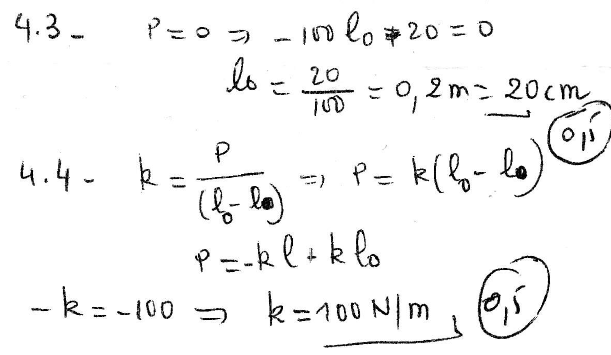 4.3- P = 0 ⇒ -100 l₀ + 20 = 0
l₀ = 20/100 = 0,2 m = 20 cm
0,5
4.4- k = P/(l₀ - l₀) ⇒ P = k(l₀ - l₀)
P = -kl + kl₀
-k = -100 ⇒ k = 100 N/m
0,5